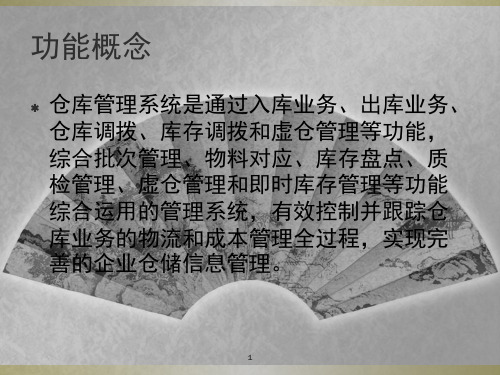 功能概念
仓库管理系统是通过入库业务、出库业务、
仓库调拨、库存调拨和虚仓管理等功能，
综合批次管理、物料对应、库存盘点、质
检管理、虚仓管理和即时库存管理等功能
综合运用的管理系统，有效控制并跟踪仓
库业务的物流和成本管理全过程，实现完
善的企业仓储信息管理。
1